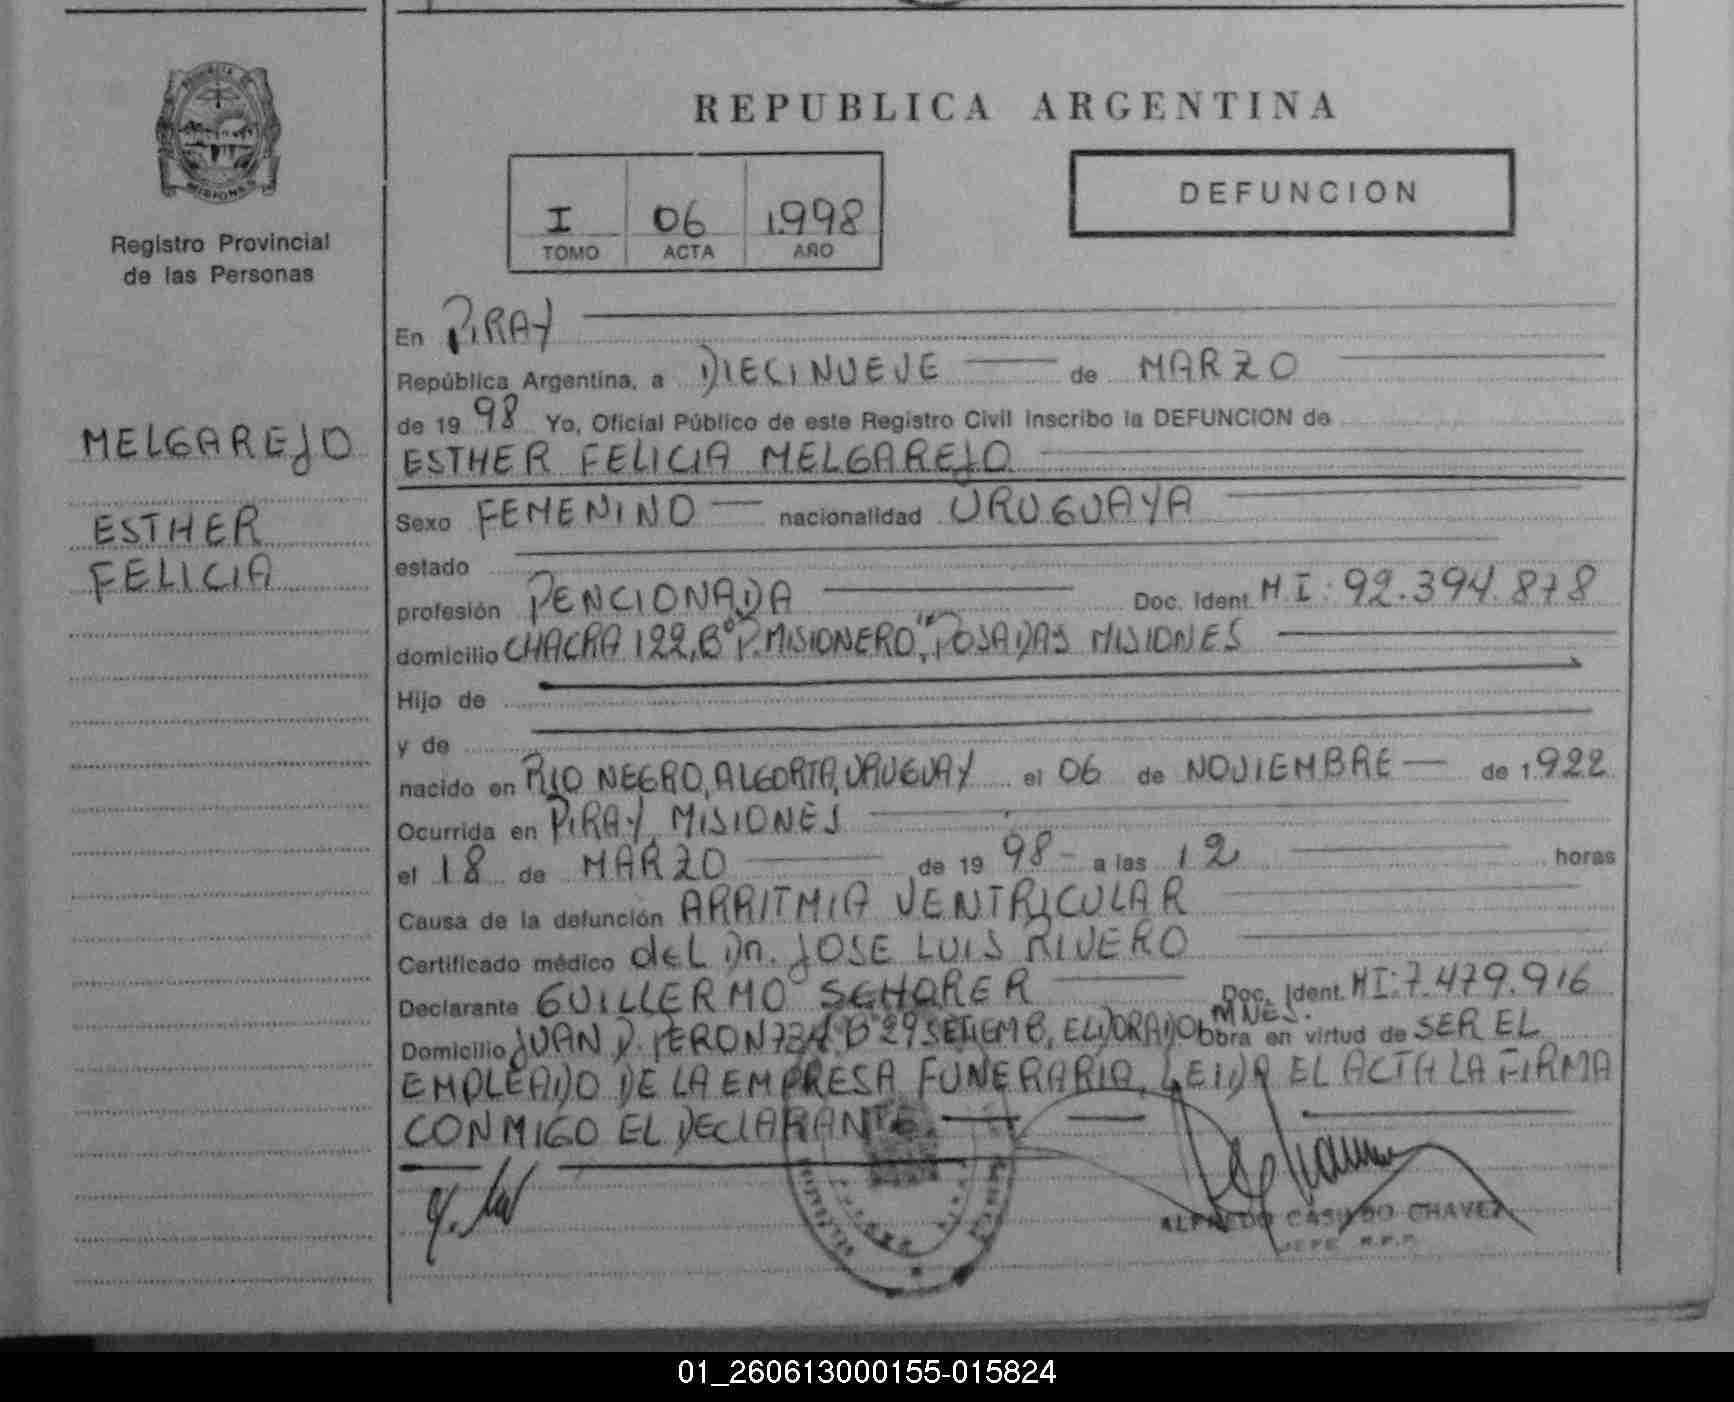 REPUBLICA ARGENTINA
I 06 1.998
TOMO ACTA AÑO
DEFUNCION
PROVINCIA DE
MISIONES
Registro Provincial
de las Personas
MELGAREJO
ESTHER
FELICIA
En PIRAY
República Argentina, a DIECINUEVE de MARZO
de 19 98 Yo, Oficial Público de este Registro Civil inscribo la DEFUNCION de
ESTHER FELICIA MELGAREJO
Sexo FEMENINO nacionalidad URUGUAYA
estado
profesión PENCIONADA Doc. Ident. M I: 92.394.878
domicilio CHACRA 122, B° P. MISIONERO, POSADAS MISIONES
Hijo de
y de
nacido en RIO NEGRO, ALGORTA, URUGUAY el 06 de NOVIEMBRE de 1.922
Ocurrida en PIRAY, MISIONES
el 18 de MARZO de 19 98 a las 12 horas
Causa de la defunción ARRITMIA VENTRICULAR
Certificado médico del Dr. JOSE LUIS RIVERO
Declarante GUILLERMO SCHORER Doc. Ident. MI: 7.479.916
MNES.
Domicilio JUAN D. PERON 734 B° 29 SETIEMB, ELDORADO Obra en virtud de SER EL
EMPLEADO DE LA EMPRESA FUNERARIA, LEIDA EL ACTA LA FIRMA
CONMIGO EL DECLARANTE.
ALFREDO CASCO CHAVEZ
JEFE R.P.P.
01_260613000155-015824